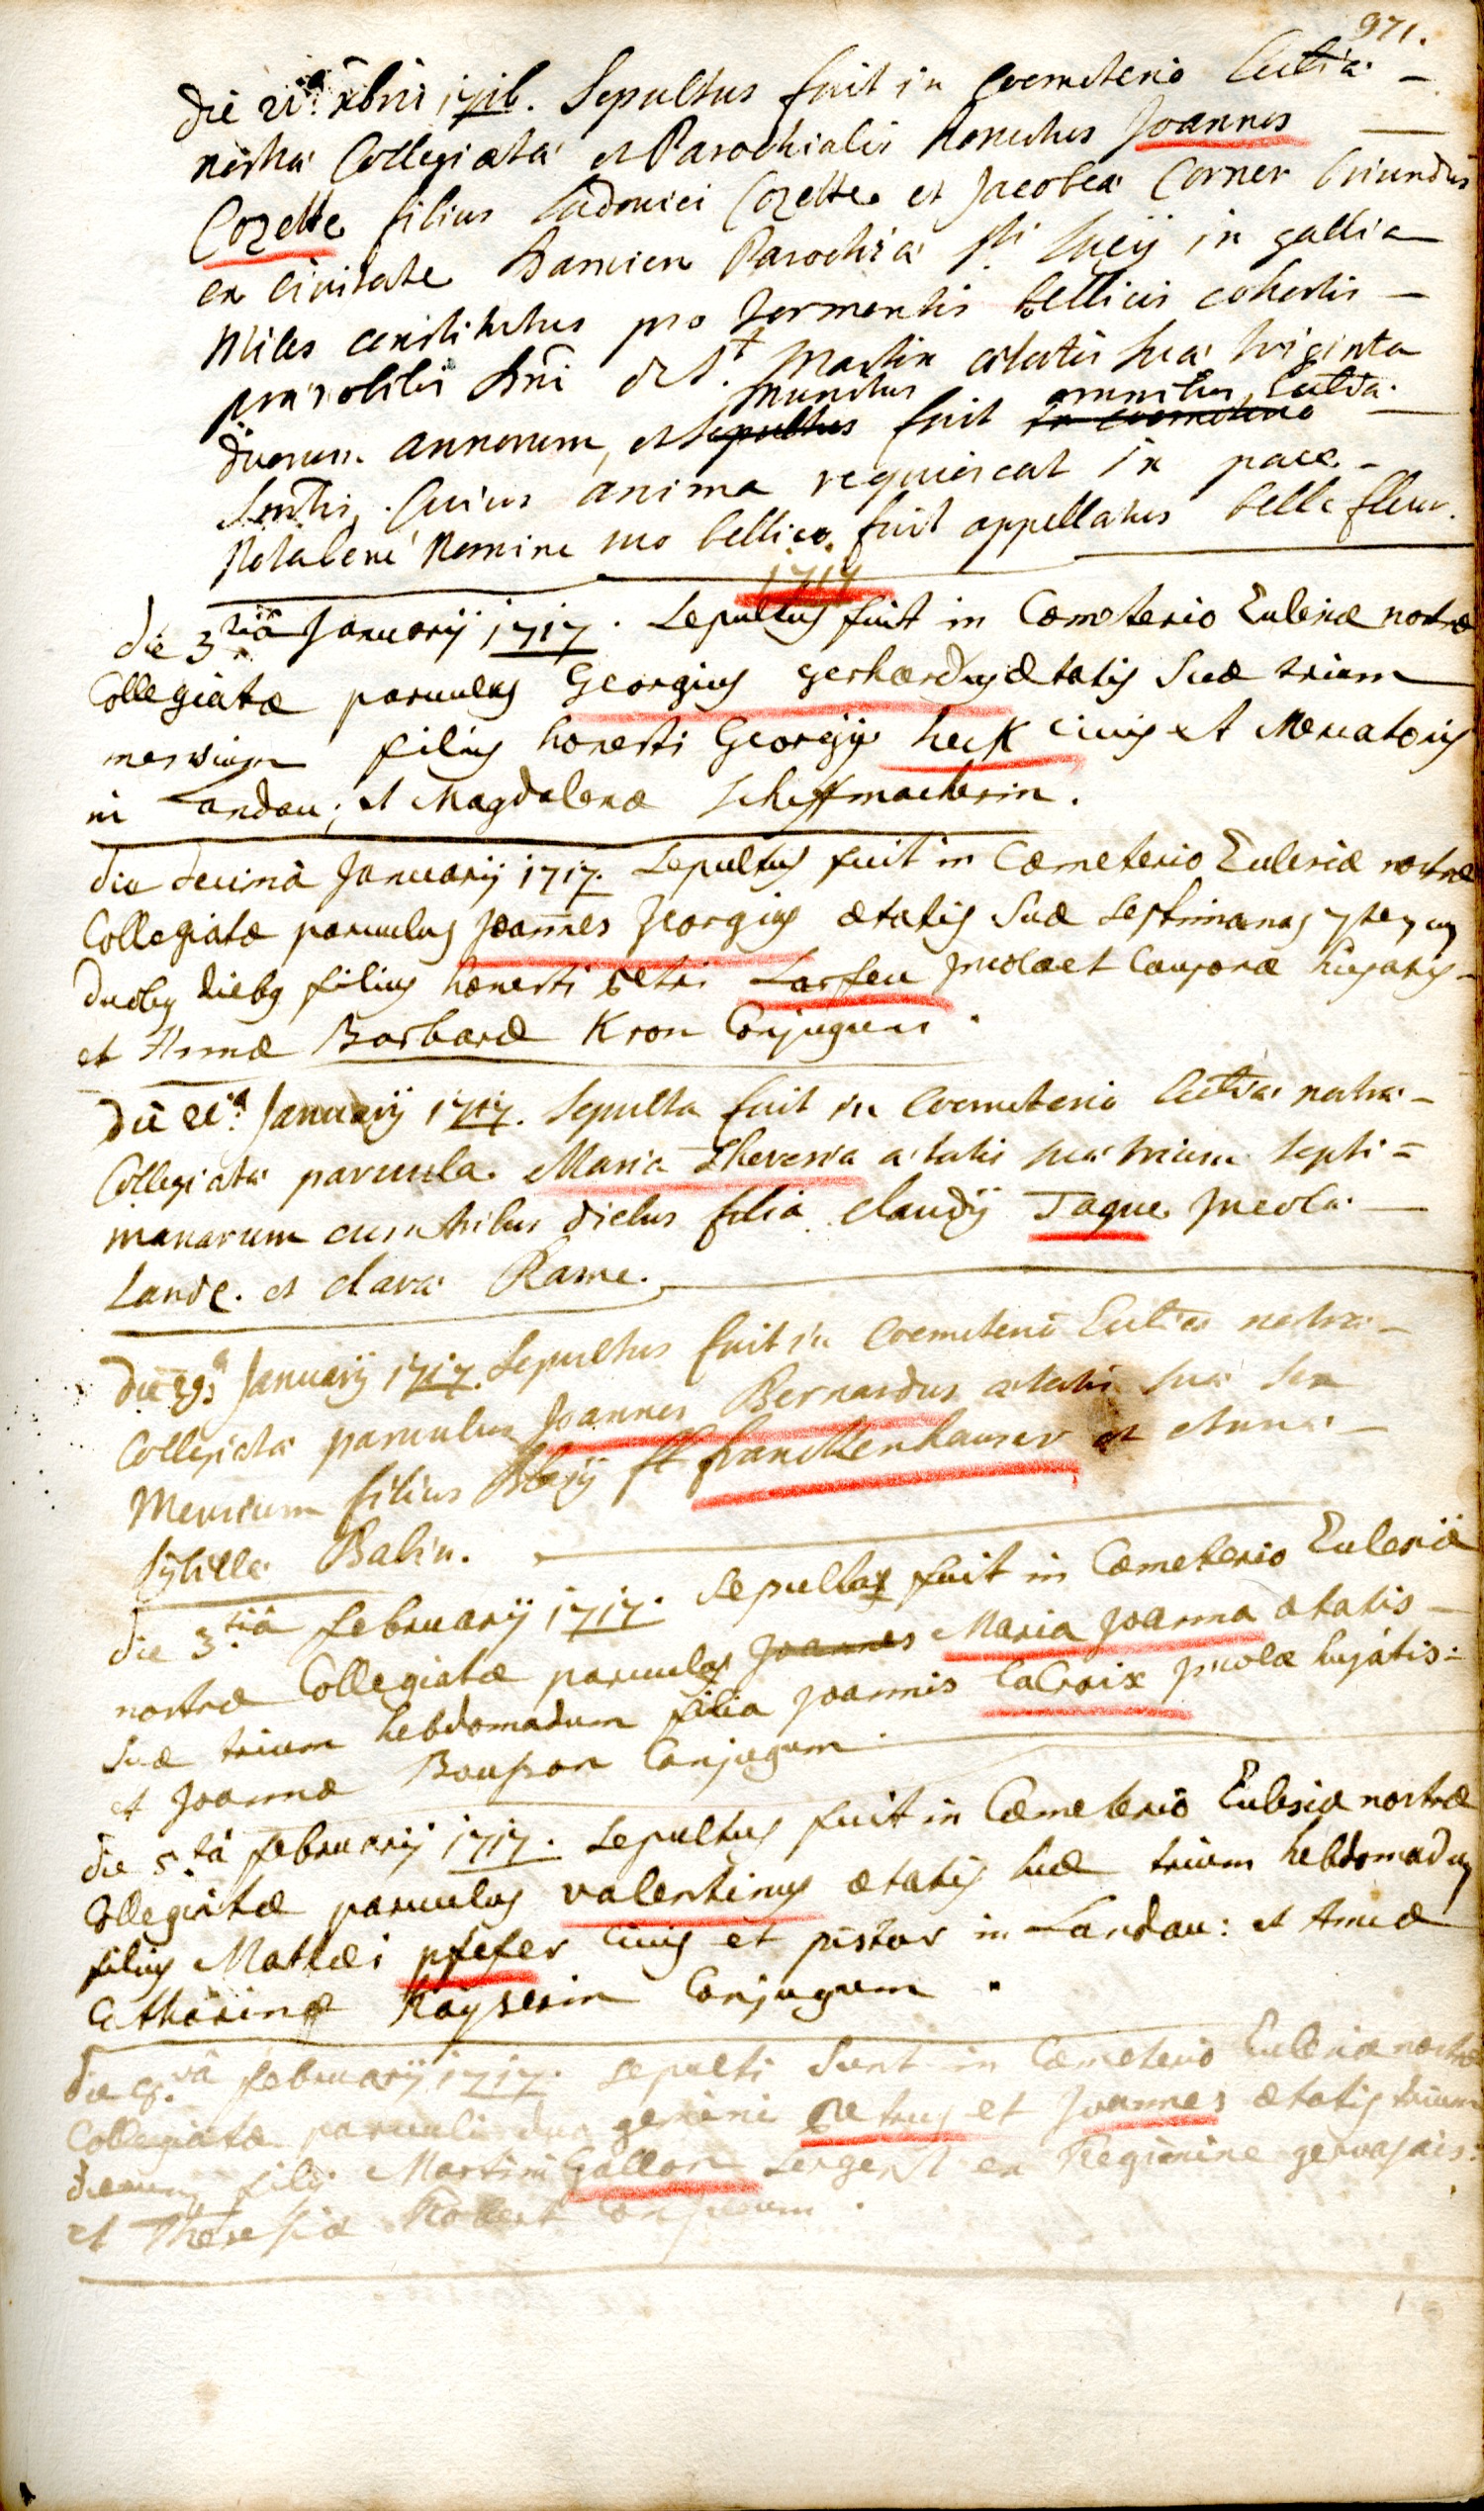 971.
die 21.a xbris 1716. Sepultus fuit in Coemeterio Eccl'iæ
nostræ Collegiatæ et Parochialis honestus Joannes
Cozette filius Ludovici Cozette et Jacobeæ Corner Oriundus
ex civitate Damien Parochiæ sti Lucij in gallia
Miles constitutus pro tormentis bellicis cohortis
prænobilis Dni de St. Martin ætatis suæ triginta
duorum annorum, et sepultus munitus fuit in coemeterio omnibus Eccl'iæ
Smtis. Cuius anima requiescat in pace
Notabene Nomine suo bellico fuit appellatus belle fleur.
1717
die 3tiâ Januarij 1717. Sepultus fuit in Coemeterio Eclesiæ nostræ
Collegiatæ parvulus Georgius gerhardus ætatis Suæ trium
mensium filius honesti Georgij heck civis et Mercatoris
in Landau; et Magdalenæ Schiffmacherin.
die decimâ Januarij 1717. Sepultus fuit in Cæmeterio Eclesiæ nostræ
Collegiatæ parvulus Joannes Georgius ætatis Suæ Septimanas
duobus diebus filius honesti Petri Larfeu Jncolæ et Cauponæ hujatis
et Annæ Barbaræ Kron Conjugum.
die 21.a Januarij 1717. Sepulta fuit in Coemeterio Eccl'iæ nostræ
Collegiatæ parvula Maria Theresia ætatis suæ trium septi=
manarum cum tribus diebus filia Claudij Taque Jncolæ
Land. et Claræ Rame.
die 29a Januarij 1717. Sepultus fuit in Coemeterio Eccl'iæ nostræ
Collegiatæ parvulus Joannes Bernardus ætatis suæ sex
Mensium filius Blasij franckenhauser et Annæ
Sybillæ Balin.
die 3.tiâ februarij 1717. Sepulta fuit in Cæmeterio Eclesiæ
nostræ Collegiatæ parvula Joannes Maria Joanna ætatis
Suæ trium hebdomadum filia Joannis LaCroix Jncolæ hujatis
et Joannæ Boupon Conjugum
die 5.tâ februarij 1717. Sepultus fuit in Cæmeterio Eclesiæ nostræ
Collegiatæ parvulus valentinus ætatis suæ trium hebdomadum
filius Mathæi pfefer Civis et pistor in Landau: et Annæ
Catharinæ Kayserin Conjugum.
februarij 1717. Sepulti Sunt in Cæmeterio Eclesiæ nostræ
Collegiatæ parvuli duo gemini Petrus et Joannes ætatis trium
dierum filij Martini Gallon Sergent ex Regimine gervasais
et Theresiæ Robert Conjugum.